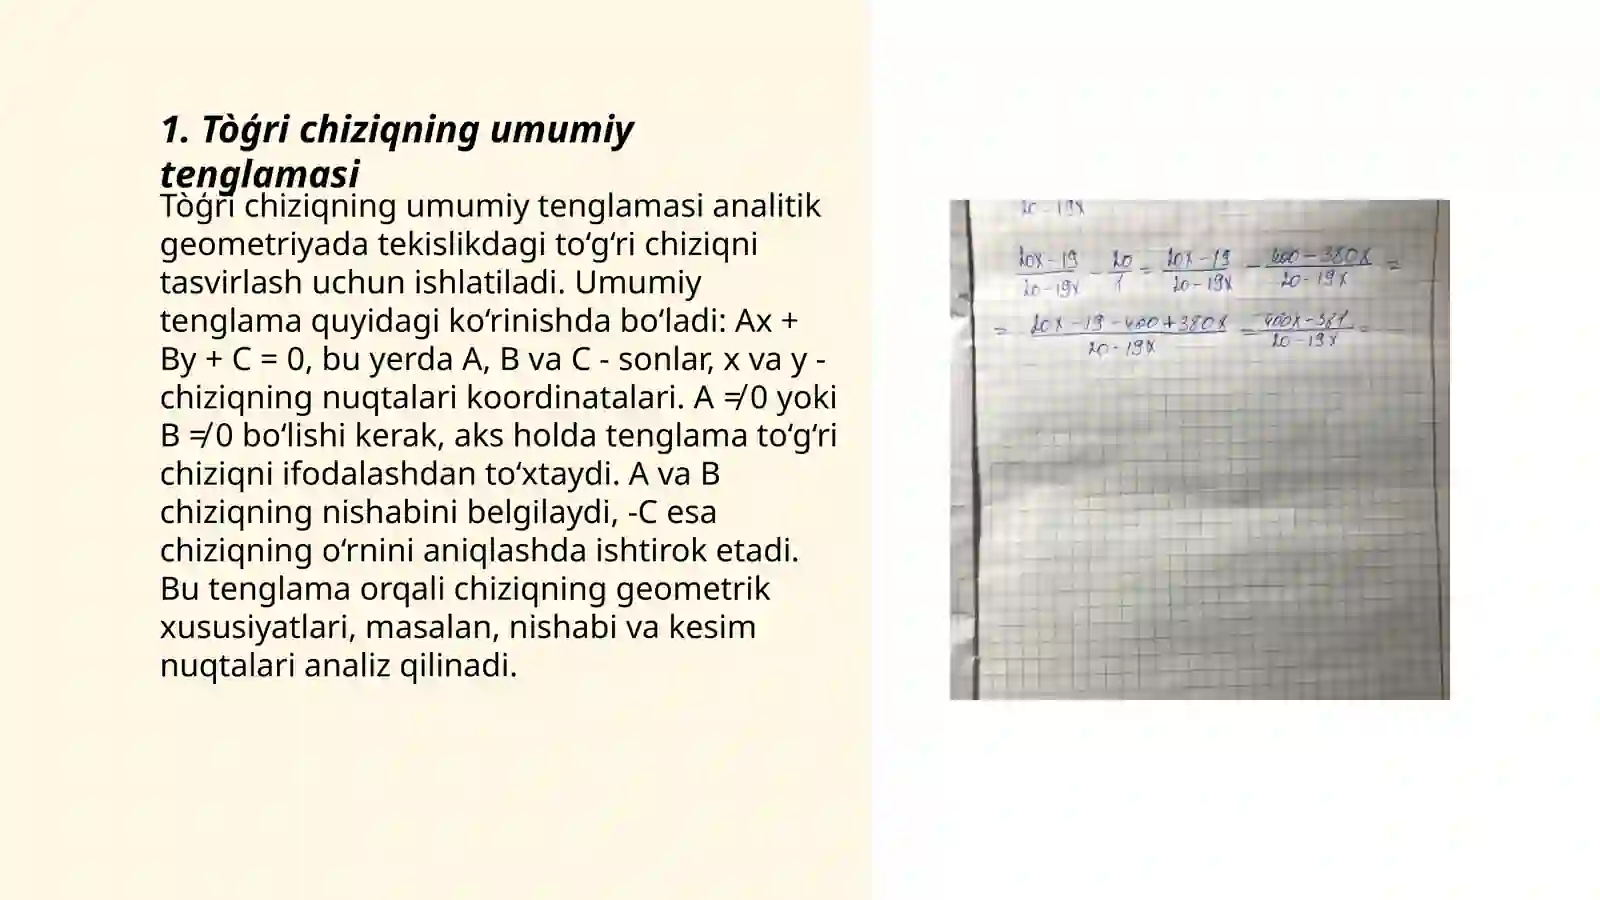 1. Tòǵri chiziqning umumiy
tenglamasi
Tòǵri chiziqning umumiy tenglamasi analitik
geometriyada tekislikdagi to‘g‘ri chiziqni
tasvirlash uchun ishlatiladi. Umumiy
tenglama quyidagi ko‘rinishda bo‘ladi: Ax +
By + C = 0, bu yerda A, B va C - sonlar, x va y -
chiziqning nuqtalari koordinatalari. A ≠ 0 yoki
B ≠ 0 bo‘lishi kerak, aks holda tenglama to‘g‘ri
chiziqni ifodalashdan to‘xtaydi. A va B
chiziqning nishabini belgilaydi, -C esa
chiziqning o‘rnini aniqlashda ishtirok etadi.
Bu tenglama orqali chiziqning geometrik
xususiyatlari, masalan, nishabi va kesim
nuqtalari analiz qilinadi.
20-19x
20x-19 / 20-19x - 20 / 1 = 20x-19 / 20-19x - 400-380x / 20-19x =
= 20x-19-400+380x / 20-19x = 400x-361 / 20-19x =